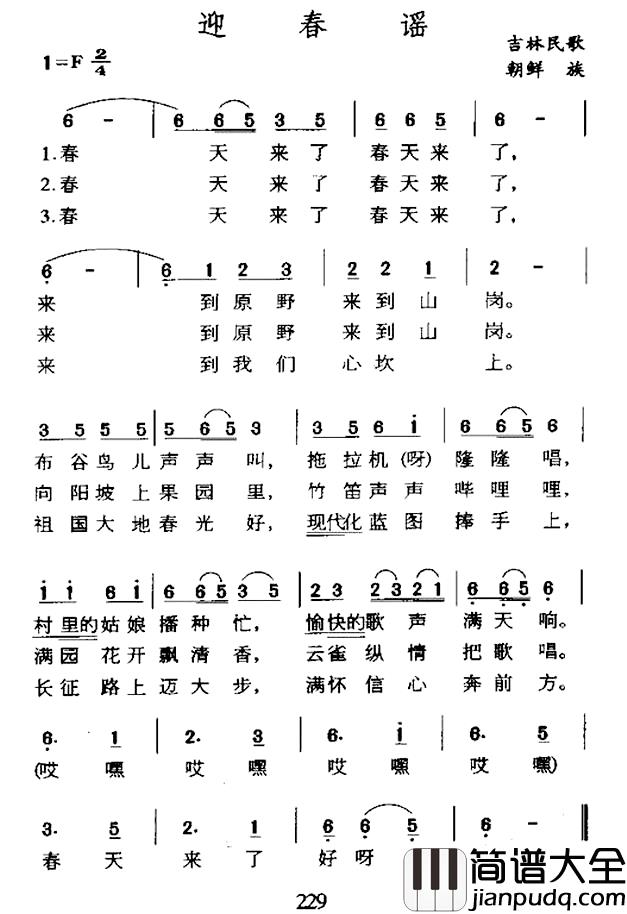 迎春谣
1=F 2/4
吉林民歌
朝鲜族
6 - | 6 6 6 5 3 5 | 6 6 6 5 | 6 -
1.春 天来了 春天来 了,
2.春 天来了 春天来 了,
3.春 天来了 春天来 了,
6 - | 6 1 2 3 | 2 2 1 | 2 -
来 到原野 来到山 岗。
来 到原野 来到山 岗。
来 到我们 心坎 上。
3 5 5 5 | 5 6 5 3 | 3 5 6 i | 5 6 5 6
布谷鸟儿声声叫, 拖拉机(呀)隆隆唱,
向阳坡上果园里, 竹笛声声哔哩哩,
祖国大地春光好, 现代化蓝图捧手上,
i i 6 i | 6 6 5 3 5 | 2 3 2 3 2 1 | 6 6 5 6
村里的姑娘播种忙, 愉快的歌声满天响。
满园花开飘清香, 云雀纵情把歌唱。
长征路上迈大步, 满怀信心奔前方。
6. 1 | 2. 3 | 6. i | 6. 5
(哎嘿 哎嘿 哎嘿 哎嘿)
3. 5 | 2. 1 | 6 6. 5 | 6 -
春天 来了 好呀
229
简谱大全
jianpudq.com